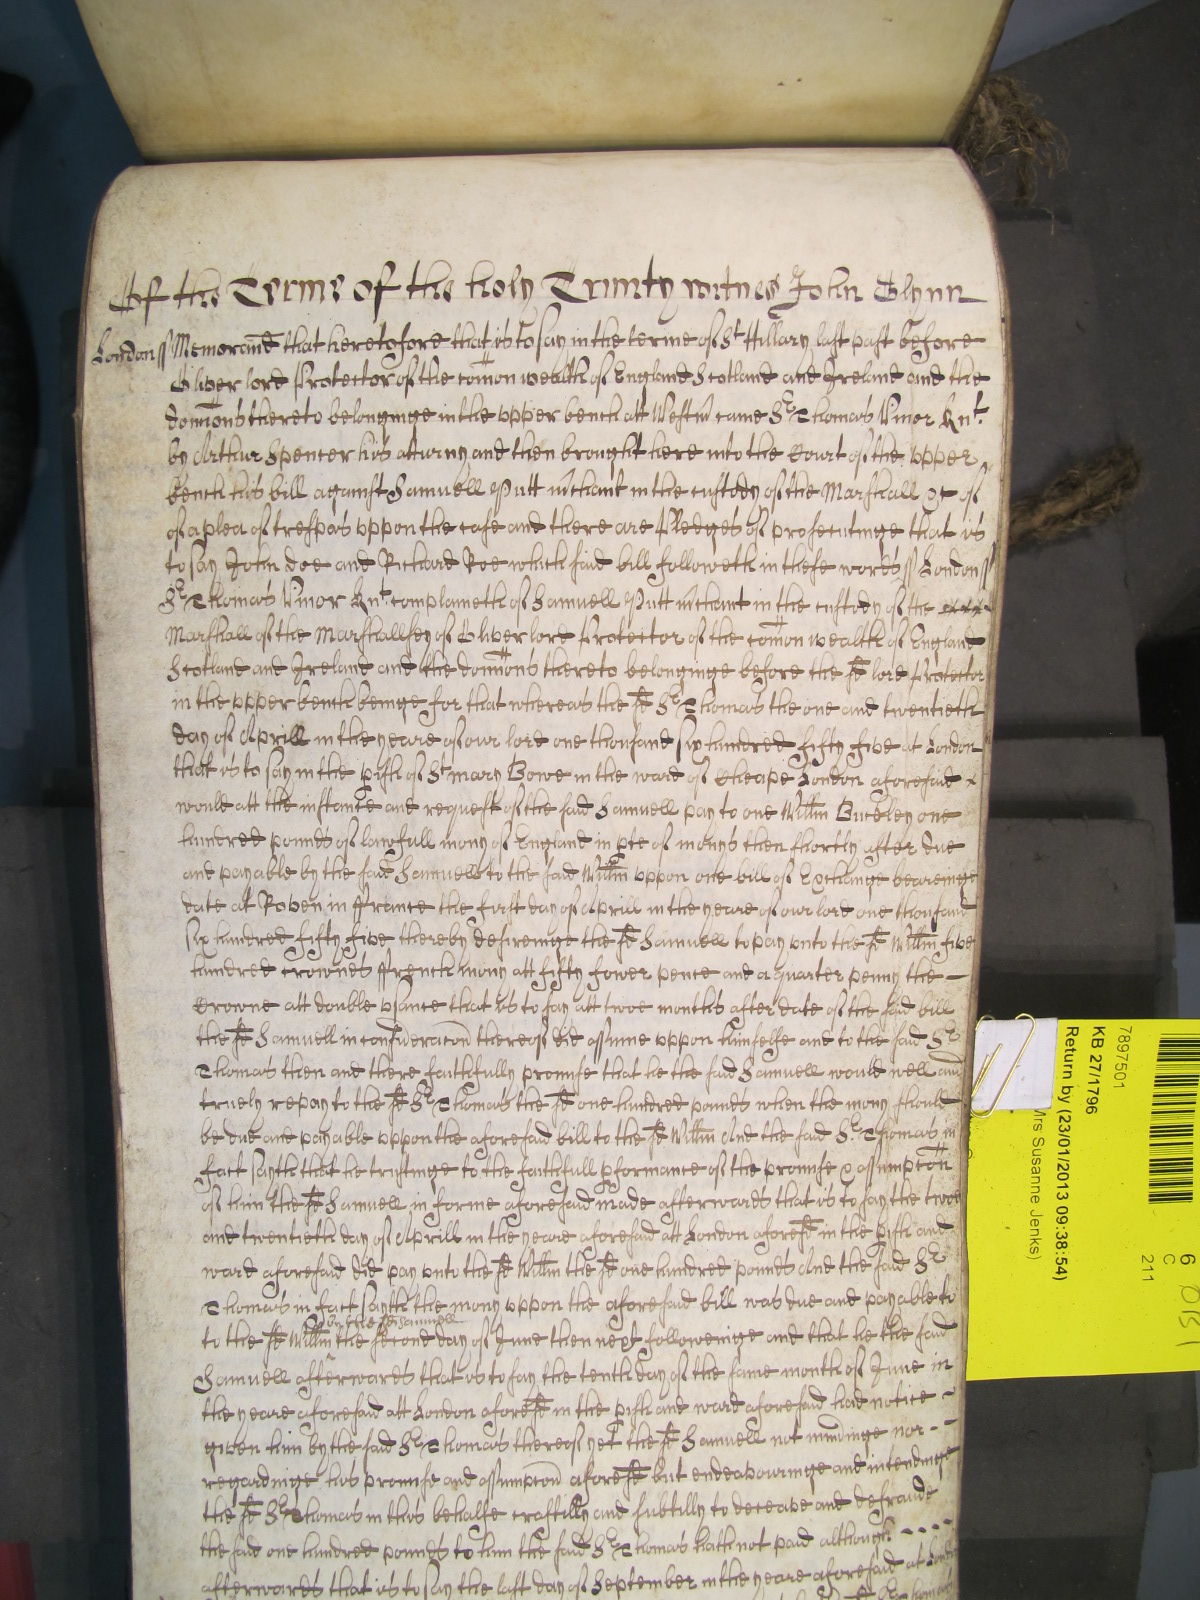 Of the Terme of the holy Trinity witnes John Glynn
London ss Memorand that heretofore that is to say in the terme of St Hillary last past before
Oliver lord Protector of the comon wealth of England Scotland and Ireland and the
dominons thereto belonginge in the upper bench att Westm came Sr Thomas Vinor Knt
by Arthur Spencer his atturny and then brought here into the Court of the upper
bench his bill against Samuell Putt mchant in the custody of the Marshall &c of
of a plea of trespas uppon the case and there are Pledges of prosecutinge that is
to say John doe and Richard Roe which said bill followeth in these words ss London ss
Sr Thomas Vinor Knt complaineth of Samuell Putt mchant in the custody of the
Marshall of the Marshallsey of Oliver lord Protector of the comon wealth of England
Scotland and Ireland and the dominons thereto belonginge before the sd lord Protector
in the upper bench beinge for that whereas the sd Sr Thomas the one and twentieth
day of Aprill in the yeare of our lord one thousand six hundred fifty five at London
that is to say in the pish of St mary Bowe in the ward of Cheape London aforesaid
would att the instance and request of the said Samuell pay to one Willm Buckley one
hundred pounds of lawfull mony of England in pte of monys then shortly after due
and payable by the said Samuell to the said Willm uppon one bill of Exchange beareinge
date at Roven in ffrance the first day of Aprill in the yeare of our lord one thousand
six hundred fifty five thereby desireinge the sd Samuell to pay unto the sd Willm five
hundred crownes ffrench mony att fifty fower pence and a quarter penny the
Crowne att double usance that is to say att twoe months after date of the said bill
the sd Samuell in consideracon thereof did assume uppon himselfe and to the said Sr
Thomas then and there faithfully promise that he the said Samuell would well and
truely repay to the sd Sr Thomas the sd one hundred pounds when the mony should
be due and payable uppon the aforesaid bill to the sd Willm And the said Sr Thomas in
fact sayth that he trustinge to the faithfull pformance of the promise & assumpcon
of him the sd Samuell in forme aforesaid made afterwards that is to say the twoe
and twentieth day of Aprill in the yeare aforesaid att London aforesd in the pish and
ward aforesaid did pay unto the sd Willm the sd one hundred pounds And the said Sr
Thomas in fact sayth the mony uppon the aforesaid bill was due and payable to
by the sd Samuell
to the sd Willm the second day of June then next followeinge and that he the said
Samuell afterwards that is to say the tenth day of the same month of June in
the yeare aforesaid att London aforesd in the pish and ward aforesaid had notice
given him by the said Sr Thomas thereof yet the sd Samuell not mindinge nor
regardinge his promise and assumpcon aforesd but endeavouringe and intendinge
the sd Sr Thomas in this behalfe craftilly and subtilly to deceave and defraude
the said one hundred pounds to him the said Sr Thomas hath not paid although
afterwards that is to say the last day of September in the yeare aforesaid at London
7897501
KB 27/1796
Return by (23/01/2013 09:38:54)
Mrs Susanne Jenks)
6
C
211